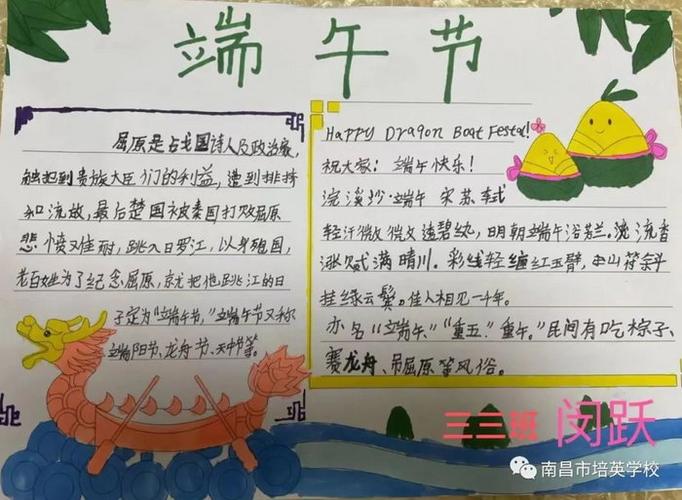 端午节
屈原是占戈国诗人及政治家,
触犯到贵族大臣们的利益,遭到排挤
和流放,最后楚国被秦国打败屈原
悲愤又难耐,跳入日罗江,以身殉国,
老百姓为了纪念屈原,就把他跳江的日
子定为“端午节,”端午节又称
端阳节、龙舟节、天中节等。
Happy Dragon Boat Festal!
祝大家: 端午快乐!
浣溪沙·端午 宋苏轼
轻汗微微透碧纨,明朝端午浴芳兰。流香
涨腻满晴川。彩线轻缠红玉臂,小符斜
挂绿云鬓。佳人相见一千年。
亦名“端午、”“重五.”重午。”民间有吃粽子、
赛龙舟、吊屈原等风俗。
三三班 闵跃
南昌市培英学校